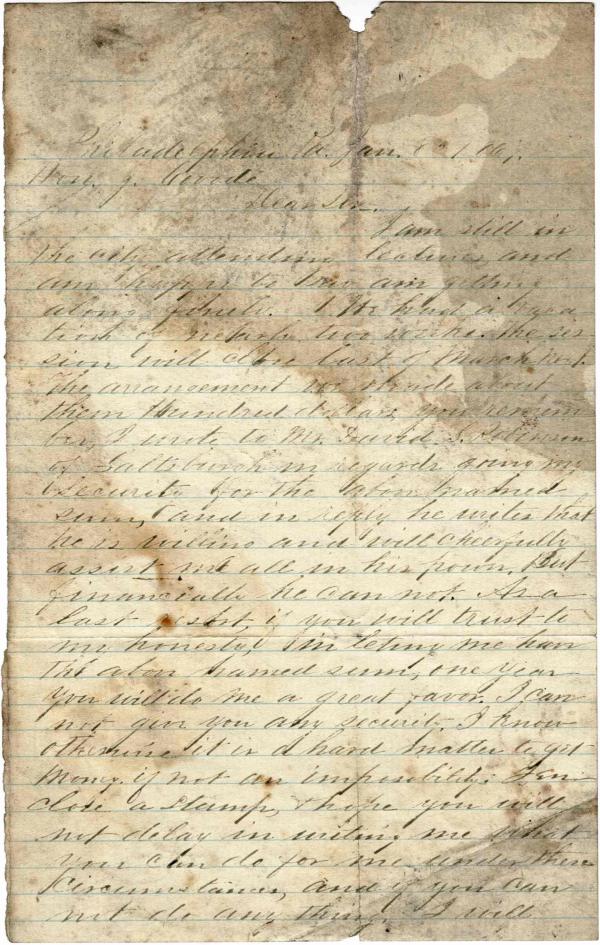 Philadelphia Pa. Jan.
Hon. J. Covode
Dear Sir.
I am still in
the city attending lectures and
am happy to say am getting
along finely. We had a vaca
tion of nearly two weeks. the ses
sion will close last of March next.
The arrangement we made about
them Hundred dollars, you remem
ber, I wrote to Mr. David S. Roberson
of Saltsburgh in regards going my
security for the above named
sum, and in reply he writes that
he is willing and will cheerfully
assist me all in his power, But
financially he can not. As a
last resort, if you will trust to
my honesty, in leting me have
the above named sum, one year
you will do me a great favor. I can
not give you any security. I know
otherwise it is a hard matter to get
Money. if not an imposibility. I en
close a stamp, & hope you will
not delay in writing me what
you can do for me under these
Circumstances, and if you can
not do any thing. I will